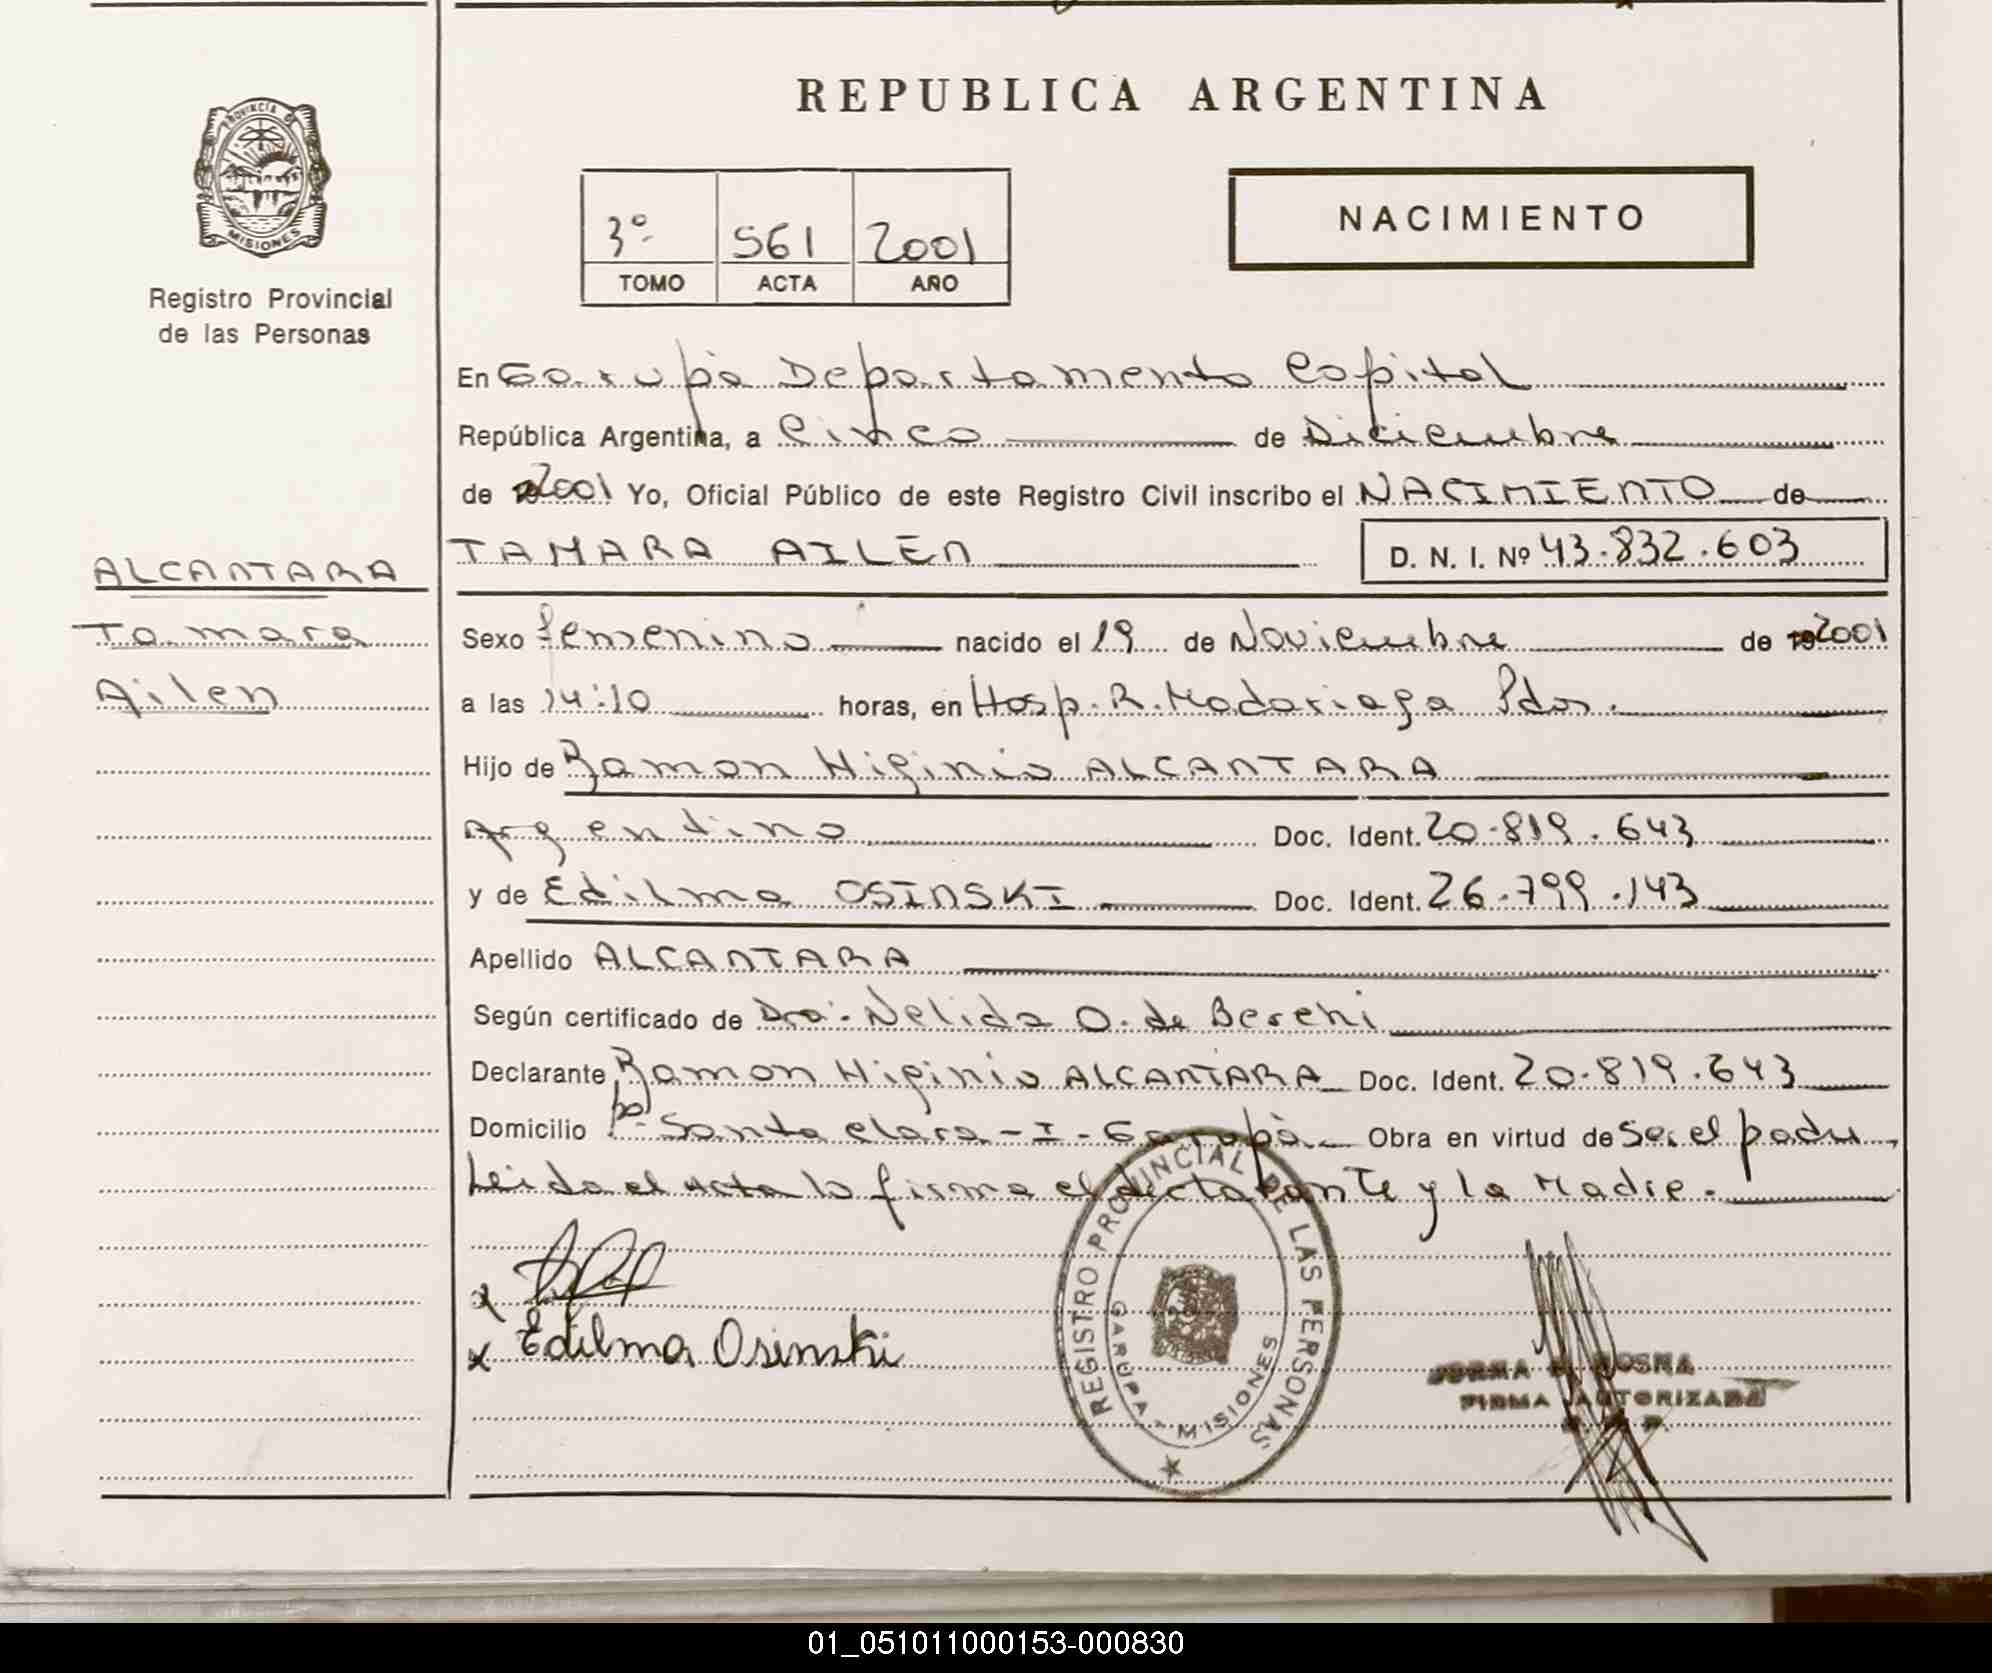 REPUBLICA ARGENTINA
PROVINCIA DE
MISIONES
Registro Provincial
de las Personas
3º
561
2001
TOMO
ACTA
AÑO
NACIMIENTO
En Garupà Departamento Capital
República Argentina, a Cinco de Diciembre
de 2001 Yo, Oficial Público de este Registro Civil inscribo el NACIMIENTO de
TAMARA AILEN D. N. I. Nº 43.832.603
ALCANTARA
Tamara
Ailen
Sexo femenino nacido el 19 de Noviembre de 2001
a las 14:10 horas, en Hosp. R. Madariaga Pdas.
Hijo de Ramon Higinio ALCANTARA
Argentino Doc. Ident. 20.819.643
y de Edilma OSINSKI Doc. Ident. 26.799.143
Apellido ALCANTARA
Según certificado de Dra. Nelida O. de Berchi
Declarante Ramon Higinio ALCANTARA Doc. Ident. 20.819.643
Domicilio Bº Santa Clara - I - Garupà Obra en virtud de Ser el padre,
Leida el Acta lo firma el declarante y la Madre.
x
x Edilma Osinski
REGISTRO PROVINCIAL DE LAS PERSONAS
GARUPA - MISIONES
FIRMA AUTORIZADA
01_051011000153-000830